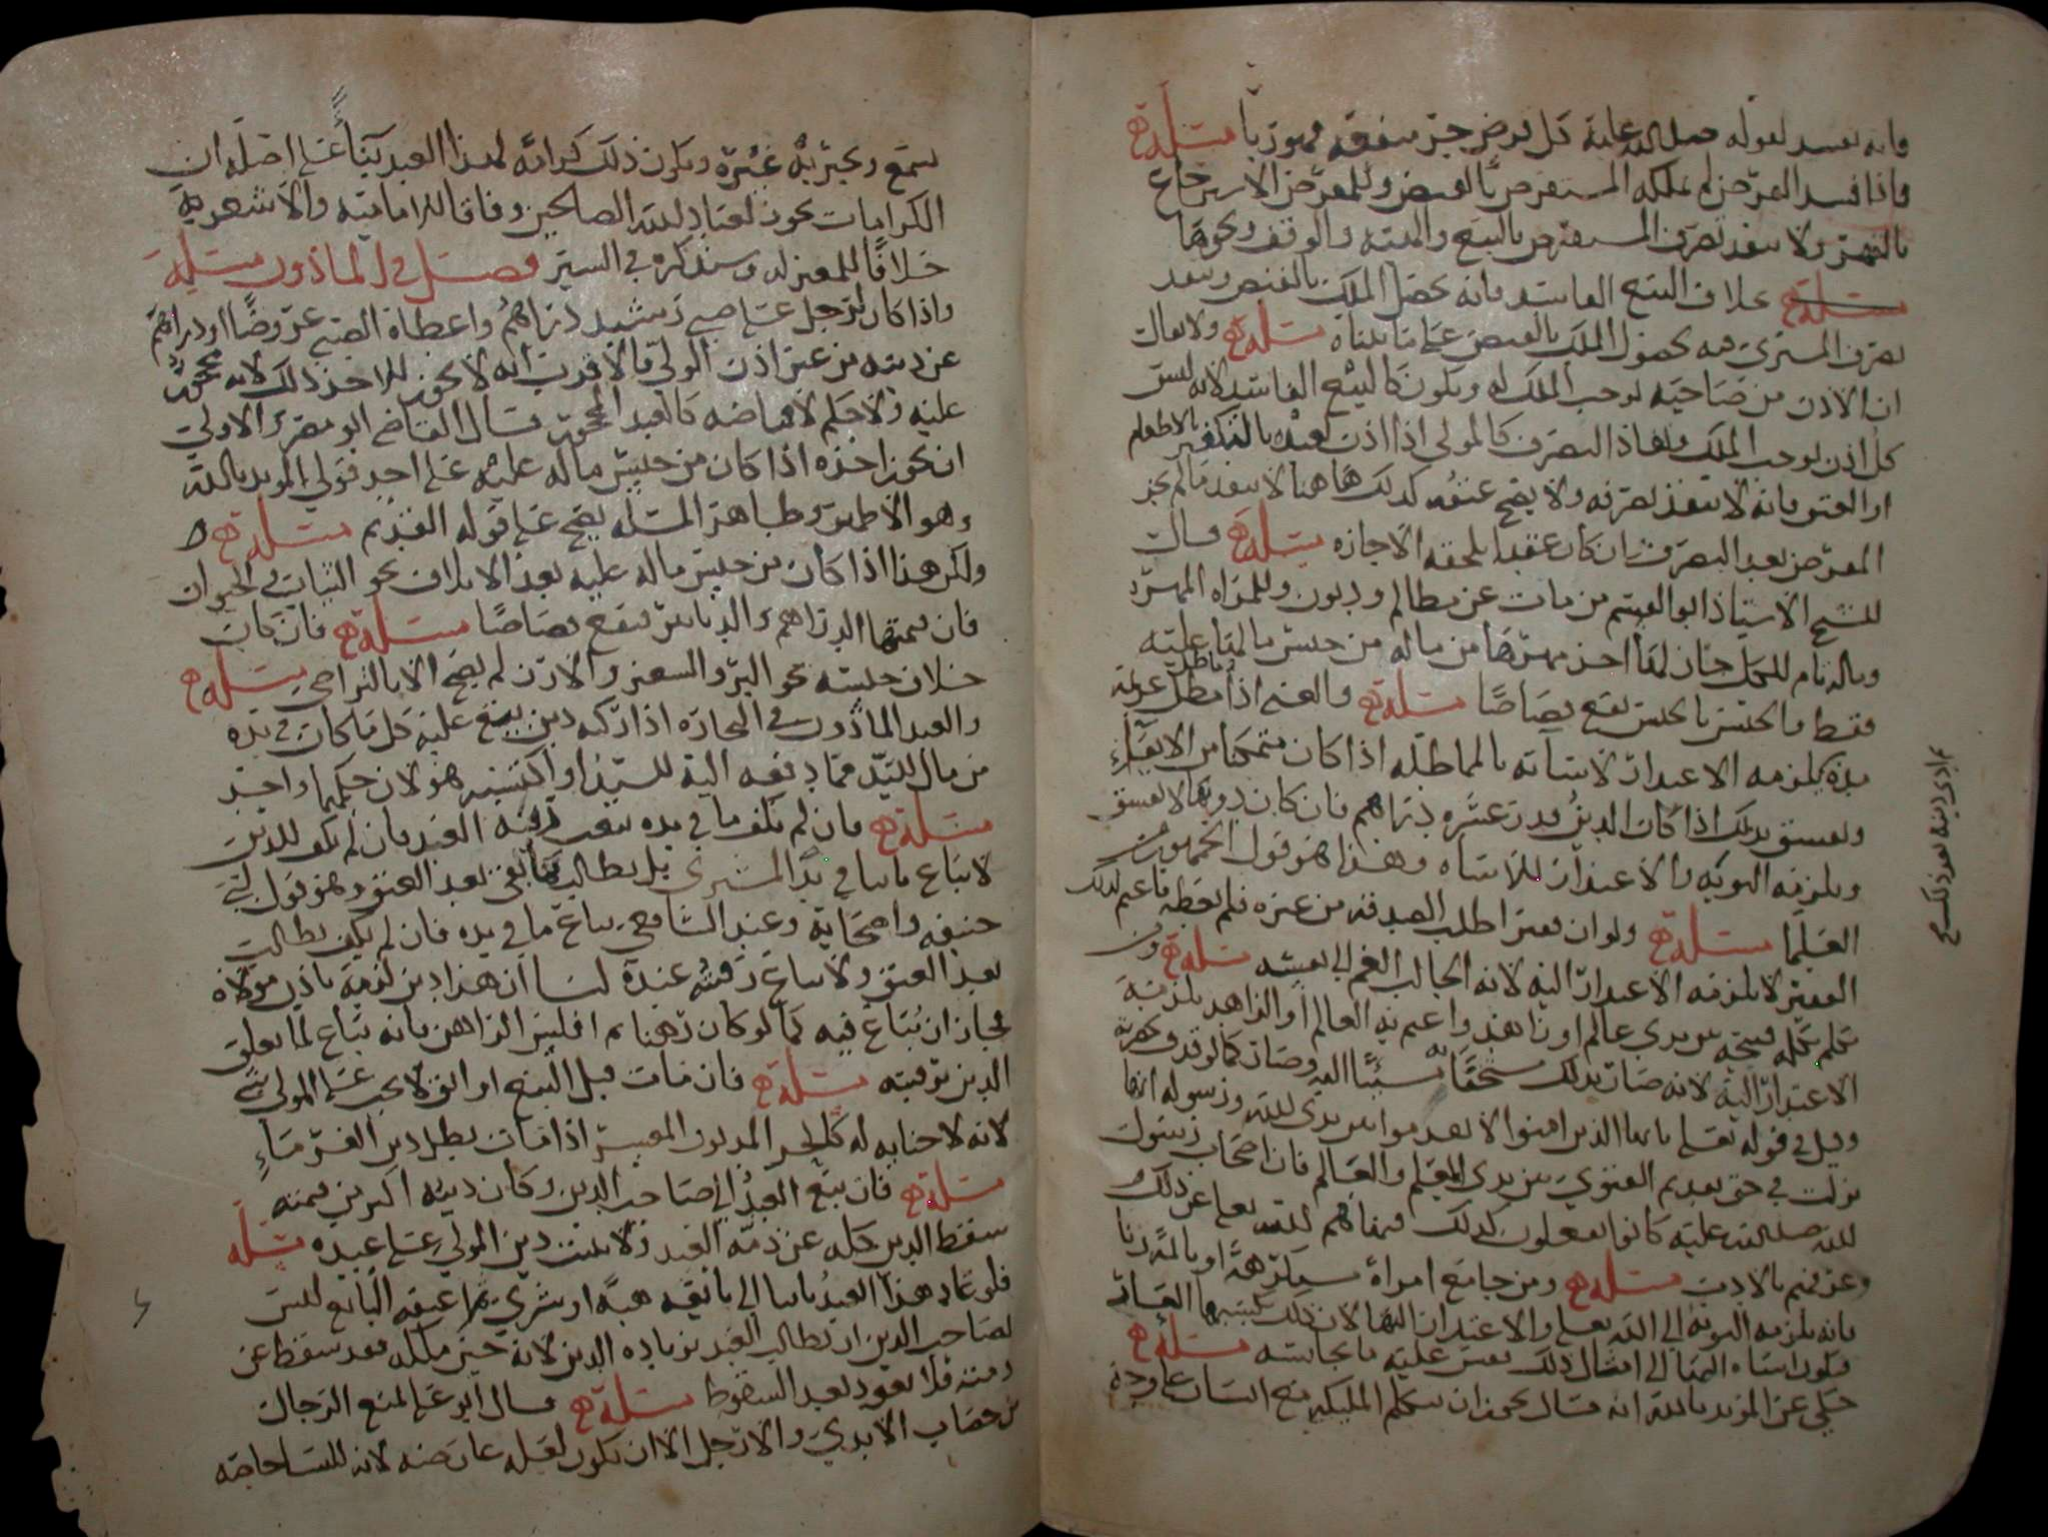 فانه يفسد لقوله صلى الله عليه كل قرض جر منفعه فهو ربا مسئلة
واذا فسد القرض لم يملكه المستقرض بالقبض وللمقرض الاسترجاع
ولا ينفذ تصرف المستقرض بالبيع والهبه والوقف ونحوها
مسئلة بخلاف البيع الفاسد فانه يحصل الملك بالقبض وينفذ
تصرف المشتري فيه بحصول الملك بالقبض على ما بيناه مسئلة ولا يقال
ان الاذن من صاحبه يوجب الملك له ويكون كالبيع الفاسد لانه ليس
كل اذن يوجب الملك ونفاذ التصرف كالمولى اذا اذن لعبده بالتكفير بالاطعام
او العتق فانه لا ينفذ تصرفه ولا يصح عتقه كذلك هاهنا لا ينفذ ما لم يجز
المقرض بعد التصرف ان كان عقدا يلحقه الاجازه مسئلة قال
الشيخ الاستاذ ابو القسم من مات عن مظالم وديون وللمراه المهر
وماله نام للكل جاز لها اخذ مهرها من ماله من جنس ما لها عليه
فقط فالجنس بالجنس يقع قصاصا مسئلة والغني اذا مطل غريمه
يلزمه الاعتذار لاساته بالمماطله اذا كان متمكنا من الايفاء
ويفسق بذلك اذا كان الدين قدر عشره دراهم فان كان دونها لا يفسق
ويلزمه التوبه والاعتذار للاساه وهذا هو قول الجمهور من
العلما مسئلة ولو ان فقيرا طلب الصدقه من غيره فلم يعطه فاغتم لذلك
الفقير لا يلزمه الاعتذار اليه لانه الجالب الغم الى نفسه مسئلة ومن
تكلم بكلمه قبيحه بين يدي عالم او زاهد واغتم به العالم او الزاهد يلزمه
الاعتذار اليه لانه صار بذلك مستخفا به مسيئا اليه وصار كما لو
وقيل في قوله تعلى يا ايها الذين امنوا لا تقدموا بين يدي الله ورسوله انها
نزلت في حق تقديم الفتوى بين يدي المعلم والعالم فان اصحاب رسول
الله صلى الله عليه كانوا يفعلون كذلك فنهاهم الله تعلى عن ذلك
بالادب مسئلة ومن جامع امراة مستكرهة او بالمه زنا
فانه يلزمه التوبه الى الله تعلى والاعتذار اليها لان ذلك يكسبها العار
فيكون اساه اليها الى امثال ذلك يقس عليه ما يجانسه مسئلة
حكي عن المويد بالله انه قال يجوز ان تتكلم المليكه مع انسان على وجه
يسمع ويخبر به غيره ويكون ذلك كرامه لهذا العبد بناء على اصله ان
الكرامات يجوز لعباد الله الصالحين وفاقا للاماميه والاشعريه
خلافا للمعتزله وسنذكره في السير فصل في الماذون مسئلة
واذا كان لرجل على صبي رشيد دراهم واعطاه الصبي عروضا او دراهم
عن دينه من غير اذن الولي فالاقرب انه لا يجوز للاخذ ذلك لانه محجور
عليه ولا حكم لاقباضه كالعبد المحجور قال القاضي ابو مضر والاولى
ان يجوز اخذه اذا كان من جنس ماله عليه على احد قولي المويد بالله
وهو الاظهر وظاهر المسله يصح على قوله القديم مسئلة
ولكن هذا اذا كان من جنس ماله عليه بعد الاتلاف نحو الثياب والحيوان
فان قيمتها الدراهم والدنانير فيقع قصاصا مسئلة فان كان
خلاف جنسه نحو البر والشعير والارز لم يصح الا بالتراضي مسئلة
والعبد الماذون في التجاره اذا ركبه دين يبيع عليه كل ما كان في يده
من مال السيد مما دفعه اليه السيد او اكتسبه هو لان حكمهما واحد
مسئلة فان لم يكف ما في يده بيعت رقبه العبد فان لم يكف للدين
لا يباع ثانيا في يد المشتري بل يطالب بما بقي بعد العتق وهو قول ابي
حنيفه واصحابه وعند الشافعي يباع ما في يده فان لم يكف يطالب
بعد العتق ولا يباع رقبته عنده لنا ان هذا دين لزمه باذن مولاه
فجاز ان يباع فيه كما لو كان رهنا ثم افلس الراهن فانه يباع لما تعلق
الدين برقبته مسئلة فان مات قبل البيع او ابق لا يجب على المولى شي
لانه لا جنايه له كالحر المديون المعسر اذا مات بطل دين الغرماء
مسئلة فان بيع العبد الى صاحب الدين وكان دينه اكثر من قيمته
سقط الدين كله عن ذمه العبد ولا يثبت دين المولى على عبده مسئلة
فلو عاد هذا العبد ثانيا الى بائعه هبة او شرى ثم اعتقه البائع ليس
لصاحب الدين ان يطالب العبد بزياده الدين لانه حين ملكه فقد سقط عن
ذمته فلا يعود بعد السقوط مسئلة قال ابو علي لمنع الرجال
من خضاب الايدي والارجل الا ان يكون لعله عارضه لانه للنسا خاصه